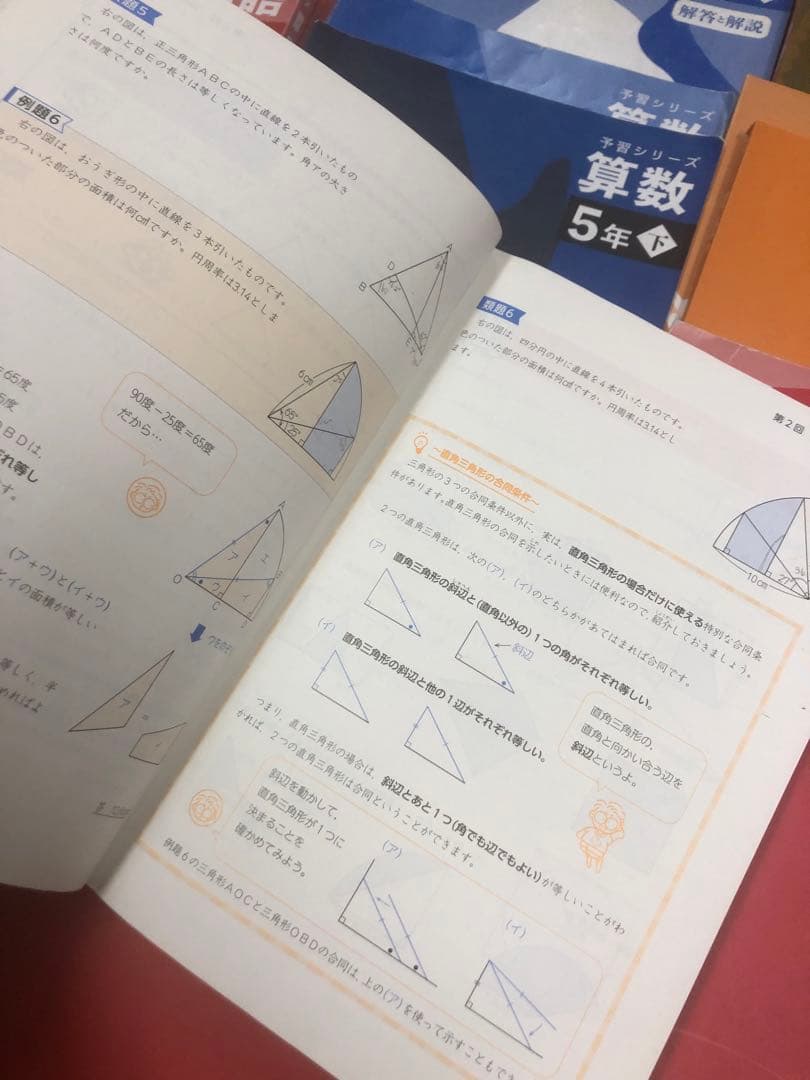 題5
右の図は、正三角形ABCの中に直線を2本引いたもの
で、ADとBEの長さは等しくなっています。角アの大き
さは何度ですか。
A
D
B
例題6
右の図は、おうぎ形の中に直線を3本引いたものです。
色のついた部分の面積は何cm²ですか。円周率は3.14としま
6cm
65°
25°
=65度
5度
90度-25度=65度
だから…
OBDは、
ぞれ等し
です。
A
O
B
C
D
ア
エ
ウ
イ
(ア+ウ)と(イ+ウ)
とイの面積が等しい
等しく、半
めればよ
ア
=
イ
解答と解説
予習シリーズ
算数
予習シリーズ
算数
5年 下
第2回
類題6
右の図は、四分円の中に直線を4本引いたものです。
色のついた部分の面積は何cm²ですか。円周率は3.14とし
ます。
10cm
27°
36
~直角三角形の合同条件~
三角形の3つの合同条件以外に、実は、直角三角形の場合だけに使える特別な合同条
件があります。直角三角形の合同を示したいときには便利なので、紹介しておきましょう。
2つの直角三角形は、次の(ア)、(イ)のどちらかがあてはまれば合同です。
(ア) 直角三角形の斜辺と(直角以外の)1つの角がそれぞれ等しい。
斜辺
(イ) 直角三角形の斜辺と他の1辺がそれぞれ等しい。
直角三角形の、
直角と向かい合う辺を
斜辺というよ。
つまり、直角三角形の場合は、斜辺とあと1つ(角でも辺でもよい)が等しいことがわ
かれば、2つの直角三角形は合同ということができます。
斜辺を動かして、
直角三角形が1つに
決まることを
確かめてみよう。
(ア)
(イ)
例題6の三角形AOCと三角形OBDの合同は、上の(ア)を使って示すこともでき